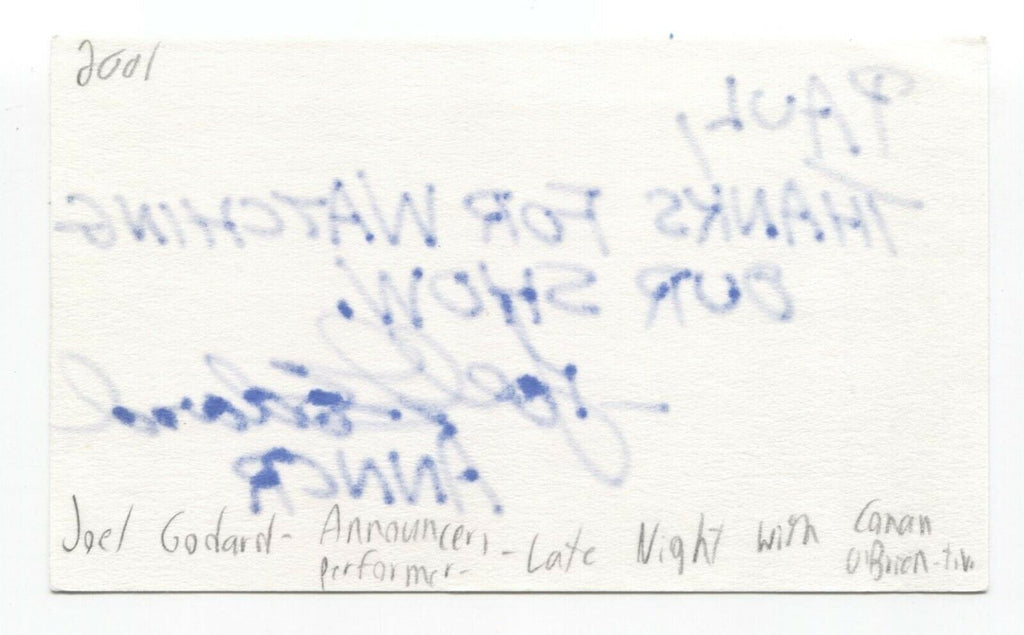 2001
PAUL,
THANKS FOR WATCHING
OUR SHOW.
Joel Godard
ANNCR
Joel Godard- Announcer, - Late Night with Conan
performer- O'Brien-t.v.